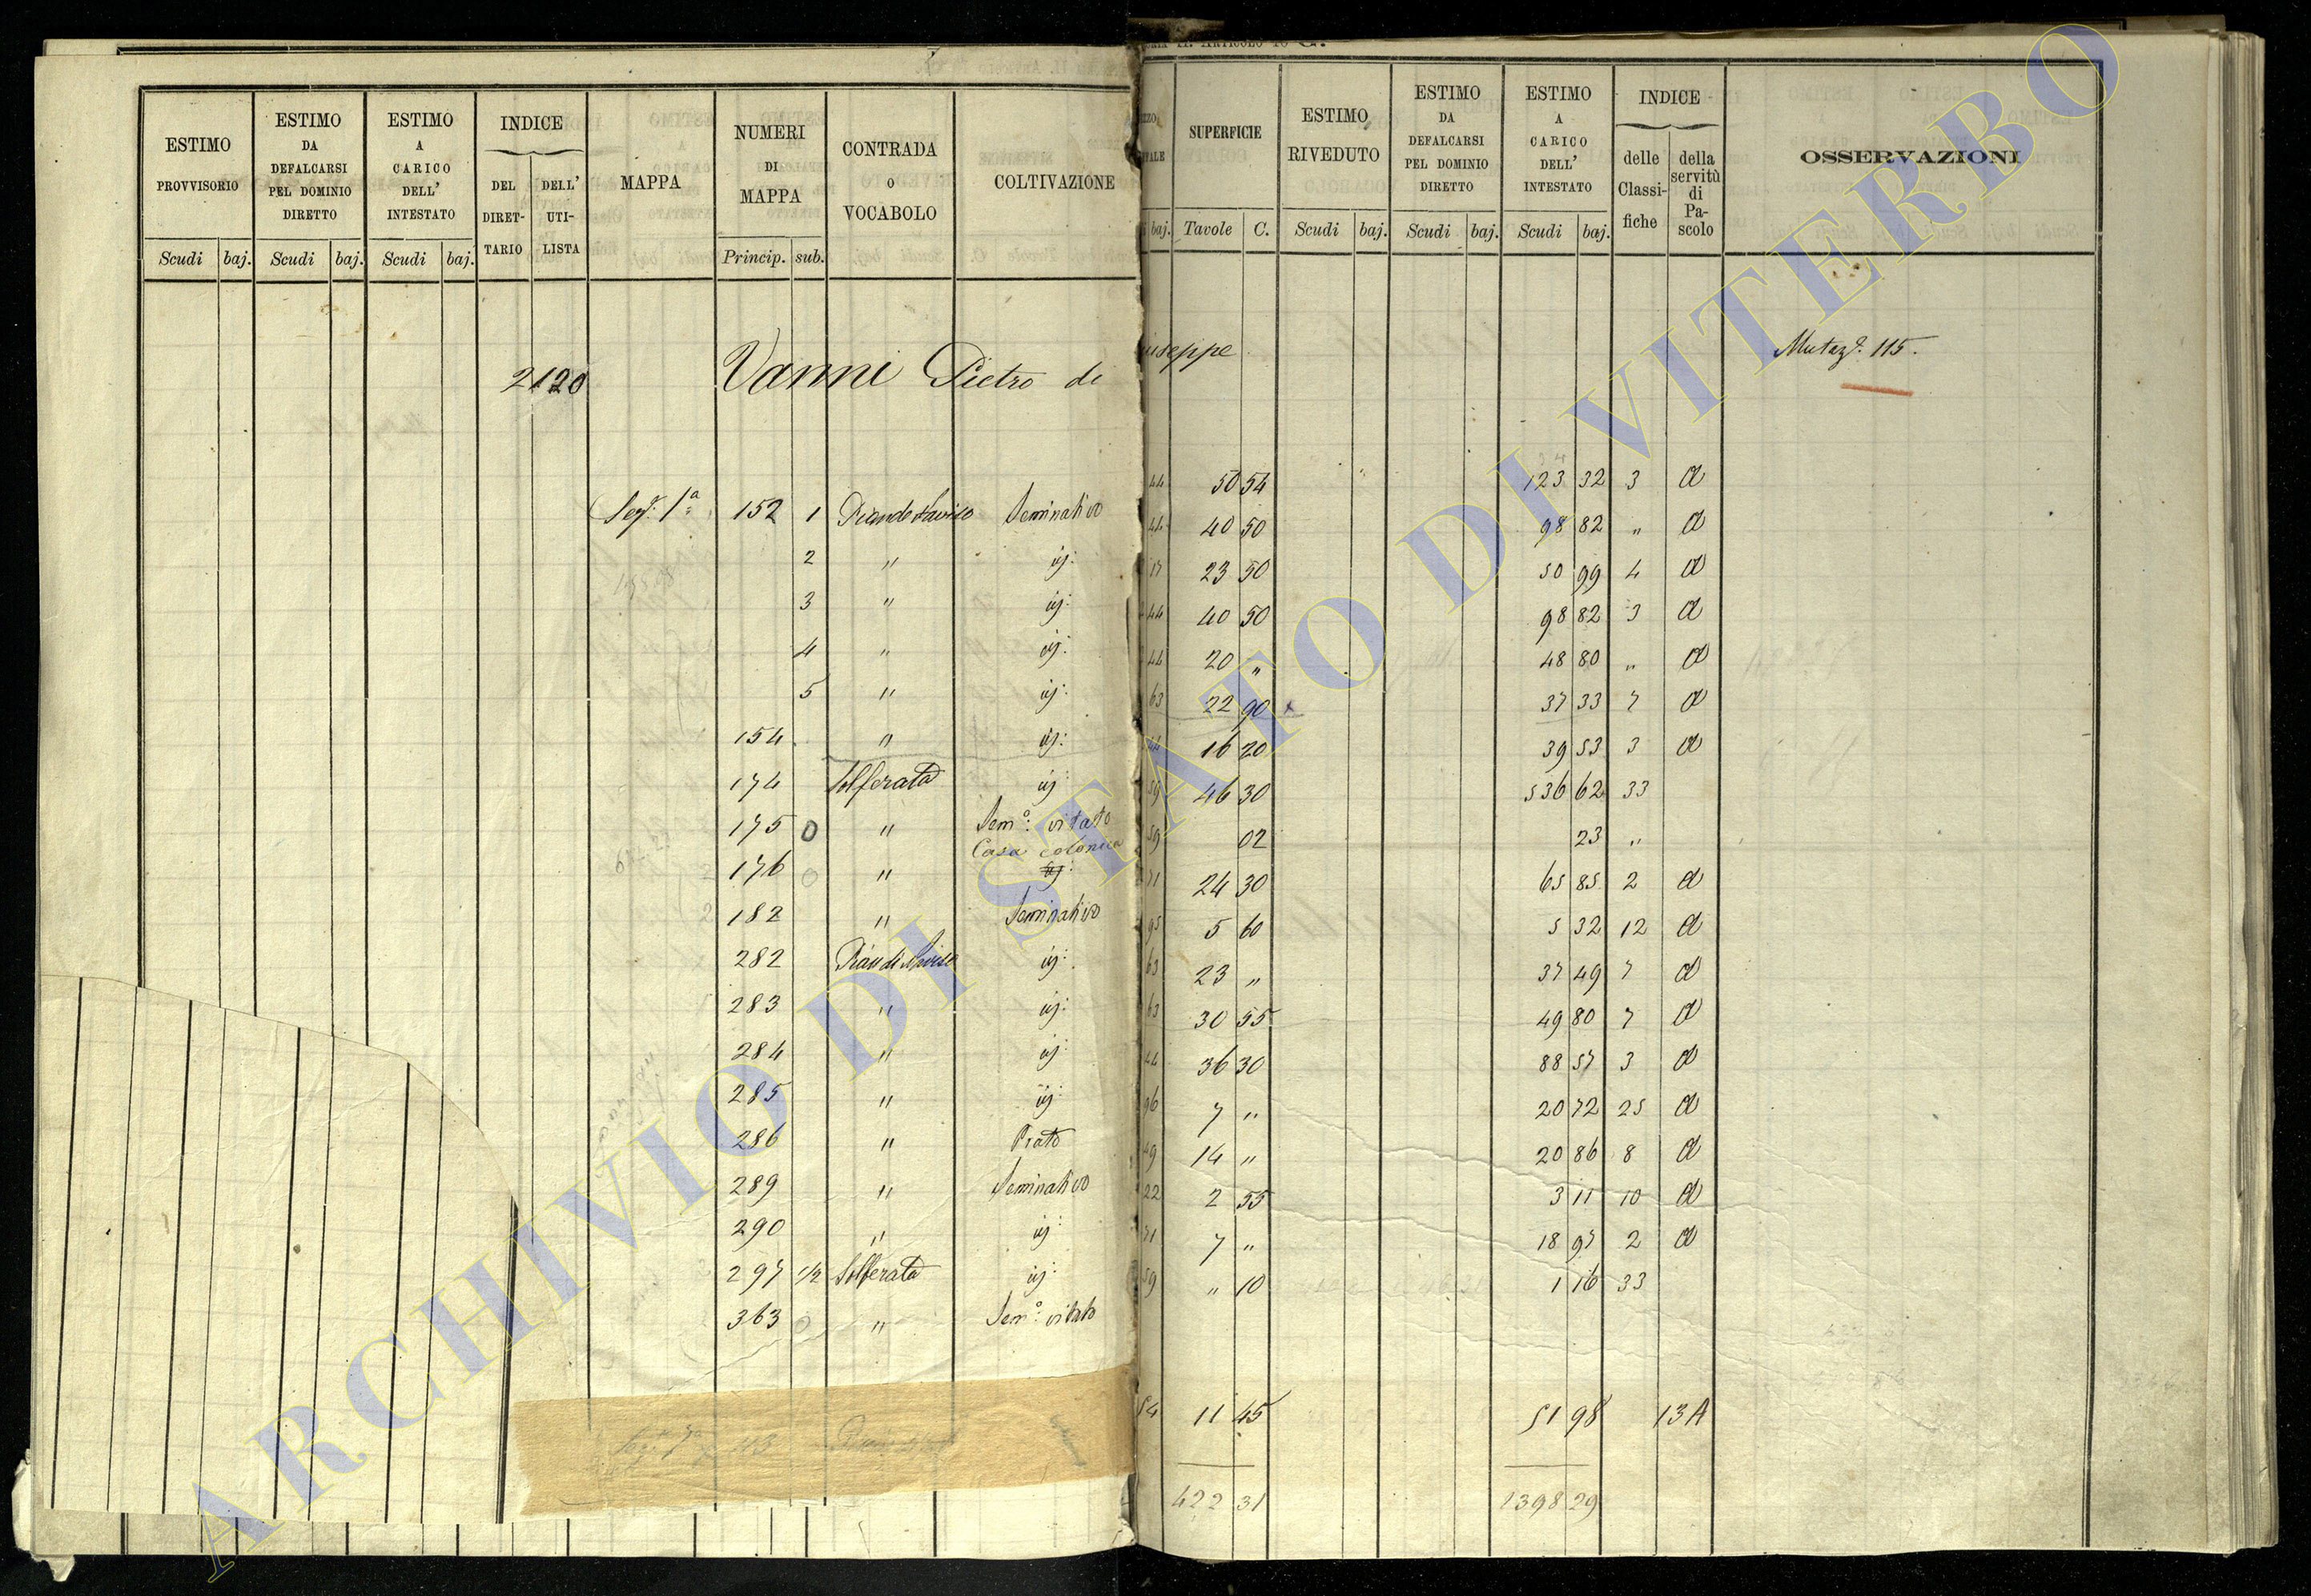 ESTIMO PROVVISORIO
ESTIMO DA DEFALCARSI PEL DOMINIO DIRETTO
ESTIMO A CARICO DELL' INTESTATO
INDICE
DEL DIRET-TARIO
DELL' UTI-LISTA
MAPPA
NUMERI DI MAPPA
CONTRADA O VOCABOLO
COLTIVAZIONE
Scudi baj. Scudi baj. Scudi baj. Princip. sub.
SUPERFICIE
ESTIMO RIVEDUTO
ESTIMO DA DEFALCARSI PEL DOMINIO DIRETTO
ESTIMO A CARICO DELL' INTESTATO
INDICE
delle Classi-fiche
della servitù di Pa-scolo
OSSERVAZIONI
baj. Tavole C. Scudi baj. Scudi baj. Scudi baj.
2120 Vanni Pietro di iuseppe
115.
Sez.e 1a 152 1 Seminativo 44 50 54 123 32 3 a
2 " ij: 44 40 50 98 82 " a
3 " ij: 17 23 50 50 99 4 a
4 " ij: 44 40 50 98 82 3 a
5 " ij: 44 20 " 48 80 " a
154 " ij: 63 22 90 37 33 7 a
174 Solferata ij 44 16 20 39 53 3 a
175 0 " Sem.o: vitato 59 46 30 536 62 33
176 0 " Casa colonica ij: 59 02 23 "
182 " Seminativo 71 24 30 65 85 2 a
282 ij: 95 5 60 5 32 12 a
283 " ij: 63 23 " 37 49 7 a
284 " ij: 63 30 55 49 80 7 a
285 " ij: 44 36 30 88 57 3 a
286 " Prato 96 7 " 20 72 25 a
289 " Seminativo 49 14 " 20 86 8 a
290 " ij: 22 2 55 3 11 10 a
297 1/2 Solferata ij: 71 7 " 18 97 2 a
363 0 " Sem.o: vitato 59 " 10 1 16 33
54 11 45 51 98 13A
422 31 1398 29
ARCHIVIO DI STATO DI VITERBO